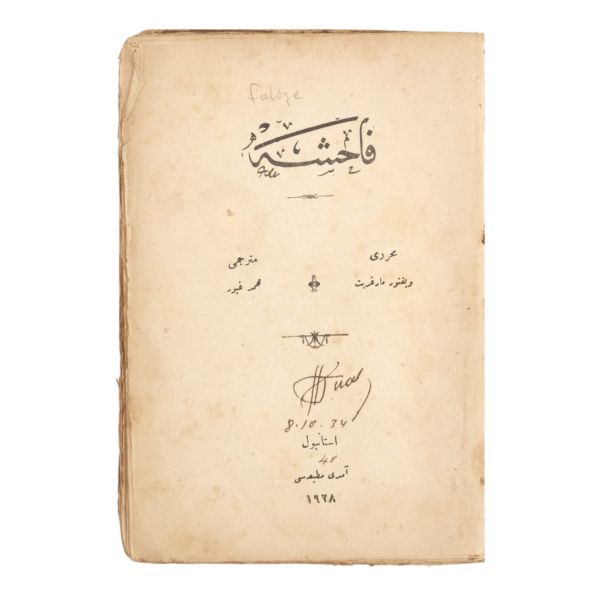 Fahişe
فاحشه
محرری
ويقتور مارغريت
مترجمی
محمد غيور
8.10.34
استانبول
40
آمدی مطبعه‌سی
١٩٢٨